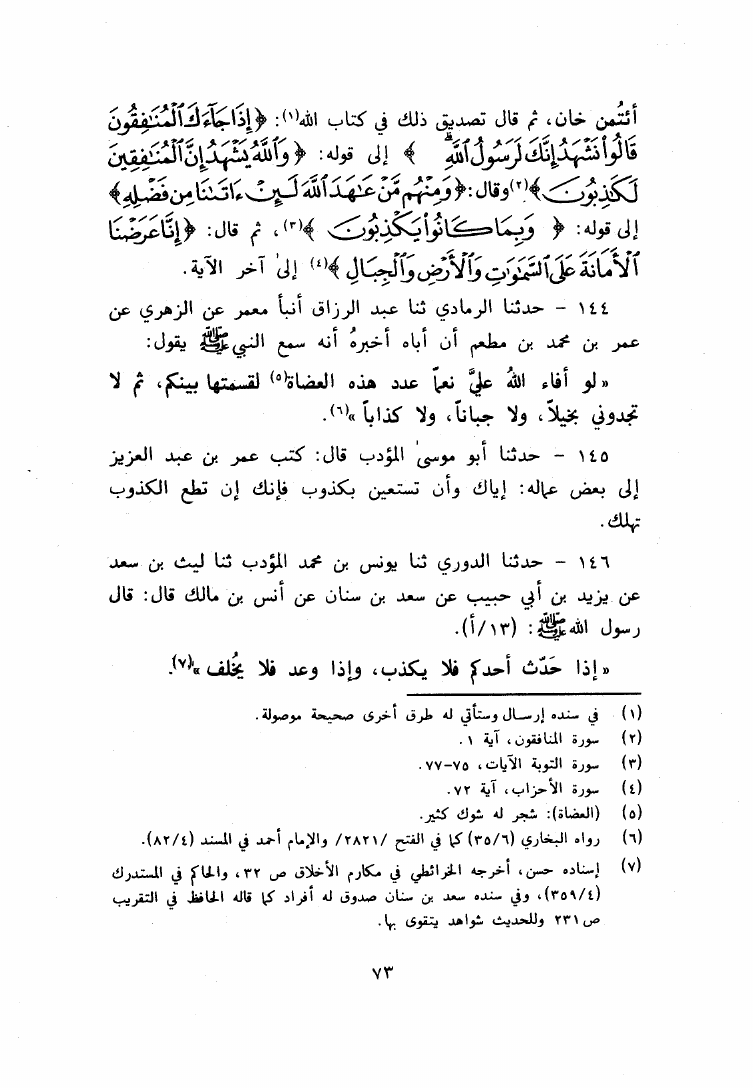 أئتُمن خان، ثم قال تصديق ذلك في كتاب الله(١): ﴿إِذَا جَآءَكَ ٱلْمُنَٰفِقُونَ
قَالُوا۟ نَشْهَدُ إِنَّكَ لَرَسُولُ ٱللَّهِۗ ﴾ إلى قوله: ﴿ وَٱللَّهُ يَشْهَدُ إِنَّ ٱلْمُنَٰفِقِينَ
لَكَٰذِبُونَ﴾(٢) وقال: ﴿وَمِنْهُم مَّنْ عَٰهَدَ ٱللَّهَ لَئِنْ ءَاتَىٰنَا مِن فَضْلِهِ﴾
إلى قوله: ﴿ وَبِمَا كَانُوا۟ يَكْذِبُونَ ﴾(٣)، ثم قال: ﴿إِنَّا عَرَضْنَا
ٱلْأَمَانَةَ عَلَى ٱلسَّمَٰوَٰتِ وَٱلْأَرْضِ وَٱلْجِبَالِ ﴾(٤) إلى آخر الآية.
١٤٤ - حدثنا الرمادي ثنا عبد الرزاق أنبأ معمر عن الزهري عن
عمر بن محمد بن مطعم أن أباه أخبرهُ أنه سمع النبي ﷺ يقول:
«لو أفاء اللهُ عليَّ نعماً عدد هذه العضاة(٥) لقسمتها بينكم، ثم لا
تجدوني بخيلاً، ولا جباناً، ولا كذاباً»(٦).
١٤٥ - حدثنا أبو موسىٰ المؤدب قال: كتب عمر بن عبد العزيز
إلى بعض عماله: إياك وأن تستعين بكذوب فإنك إن تطع الكذوب
تهلك.
١٤٦ - حدثنا الدوري ثنا يونس بن محمد المؤدب ثنا ليث بن سعد
عن يزيد بن أبي حبيب عن سعد بن سنان عن أنس بن مالك قال: قال
رسول الله ﷺ: (١٣/أ).
«إذا حَدّث أحدكم فلا يكذب، وإذا وعد فلا يُخلف»(٧).
(١) في سنده إرسال وستأتي له طرق أخرى صحيحة موصولة.
(٢) سورة المنافقون، آية ١.
(٣) سورة التوبة الآيات، ٧٥-٧٧.
(٤) سورة الأحزاب، آية ٧٢.
(٥) (العضاة): شجر له شوك كثير.
(٦) رواه البخاري (٣٥/٦) كما في الفتح /٢٨٢١/ والإمام أحمد في المسند (٨٢/٤).
(٧) إسناده حسن، أخرجه الخرائطي في مكارم الأخلاق ص ٣٢، والحاكم في المستدرك
(٣٥٩/٤)، وفي سنده سعد بن سنان صدوق له أفراد كما قاله الحافظ في التقريب
ص٢٣١ وللحديث شواهد يتقوى بها.
٧٣